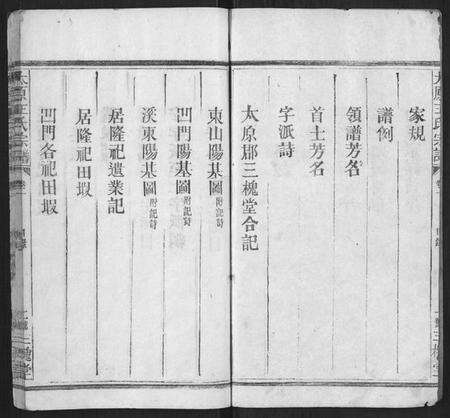 家規
譜例
領譜芳名
首士芳名
字派詩
太原郡三槐堂合記
東山陽基圖 附記詩
凹門陽基圖 附記詩
溪東陽基圖 附記詩
居隆祀遺業記
居隆祀田塅
凹門各祀田塅